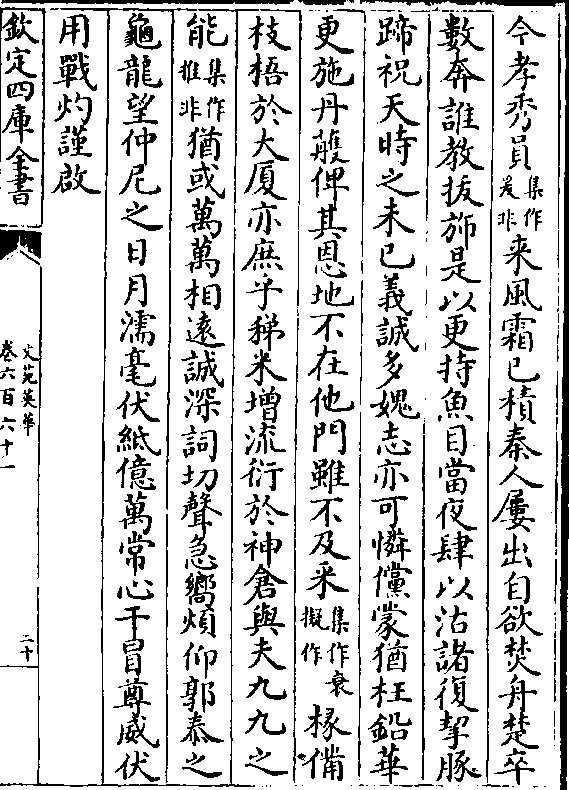 今孝秀員集作爰非来風霜已積秦人屢出自欲焚舟楚卒
數奔誰教拔斾是以更持魚目當夜肆以沽諸復挈豚
蹄祝天時之未已義誠多媿志亦可憐儻蒙猶枉鉛華
更施丹雘俾其恩地不在他門雖不及采集作衰擬作椽備
枝梧於大厦亦庶乎稊米增流衍於神倉與夫九九之
能集作推非猶或萬萬相逺誠深詞切聲急嚮煩仰郭泰之
龜龍望仲尼之日月濡毫伏紙億萬常心干冒尊威伏
用戰灼謹啟
欽定四庫全書
文苑英華
卷六百六十一
二十